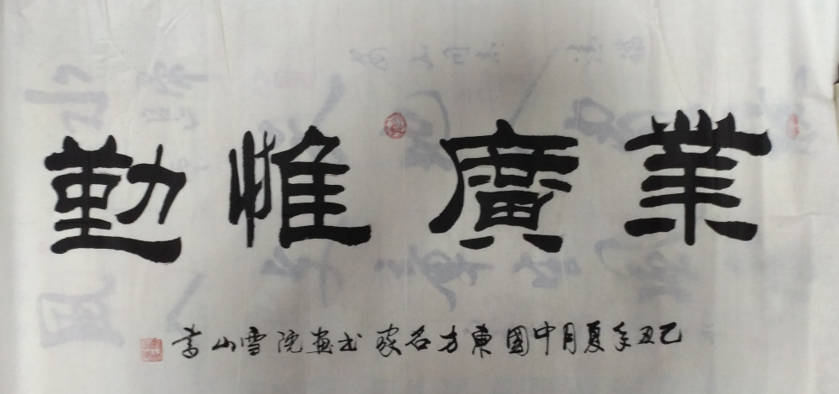 業廣惟勤
己丑年夏月中國東方名家書畫院雪山書